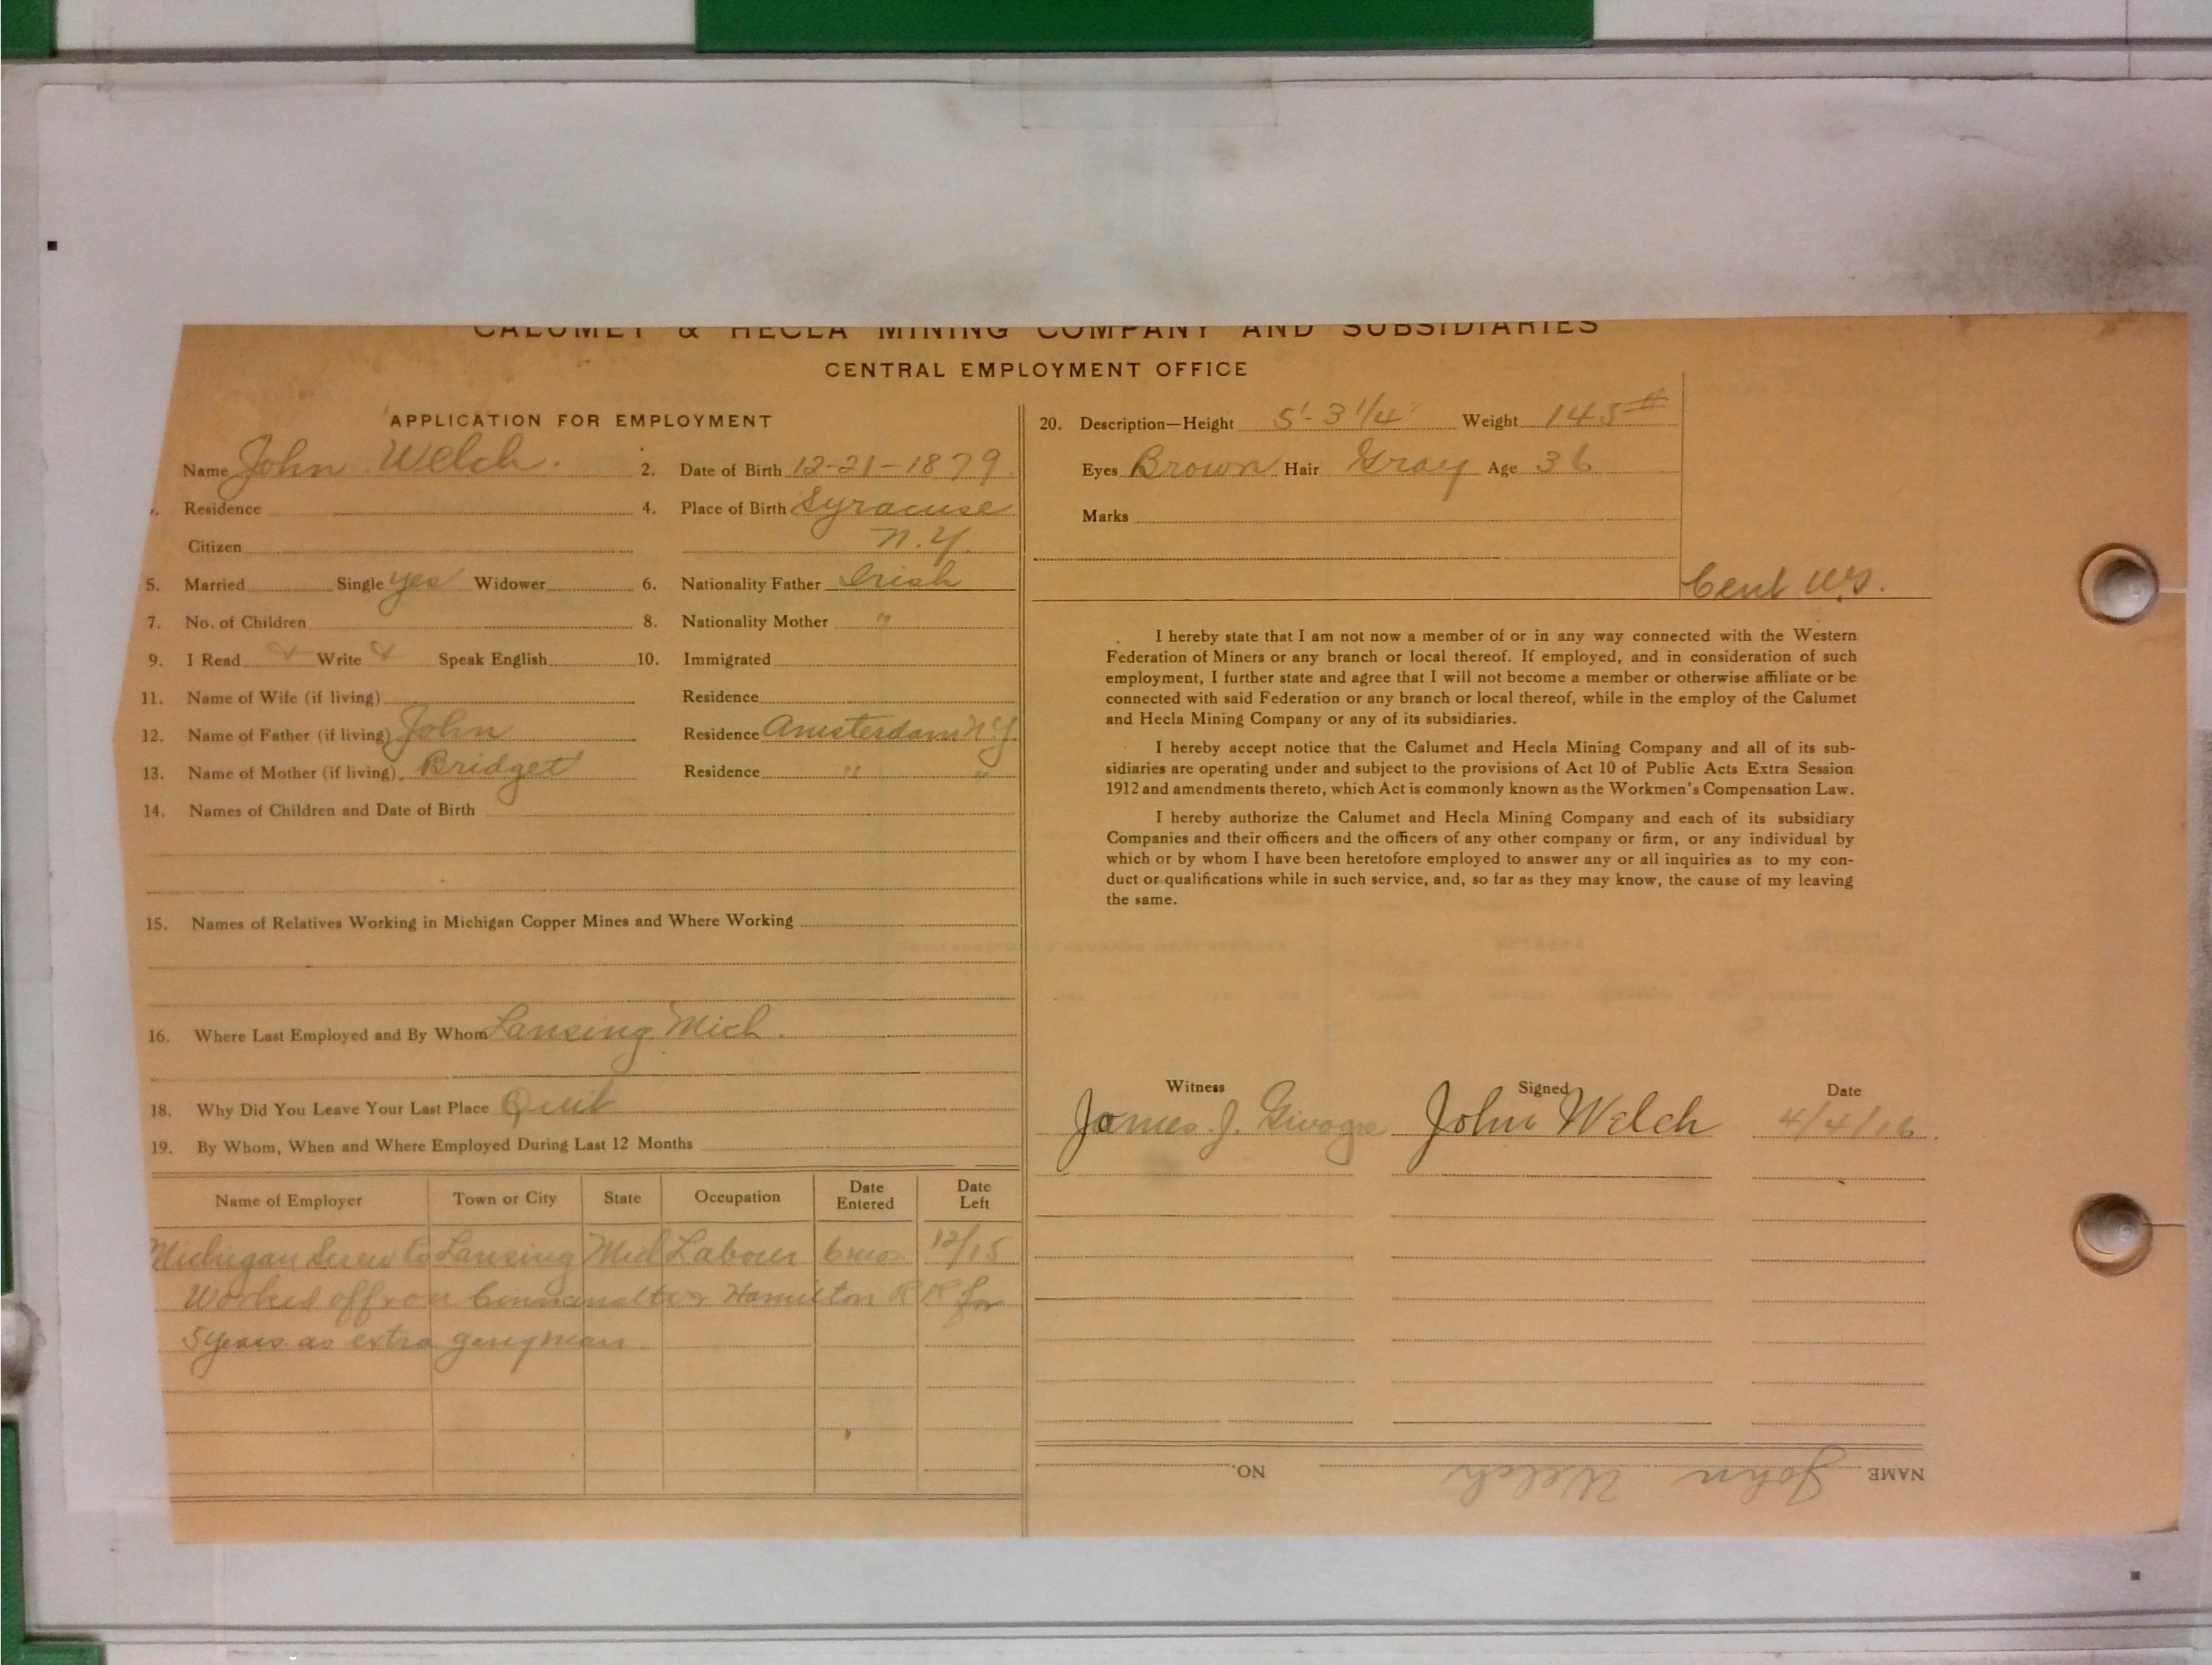 CALUMET & HECLA MINING COMPANY AND SUBSIDIARIES
CENTRAL EMPLOYMENT OFFICE
APPLICATION FOR EMPLOYMENT
Name John Welch. 2. Date of Birth 12-21-1879
Residence 4. Place of Birth Syracuse
Citizen N.Y.
5. Married Single yes Widower 6. Nationality Father Irish
7. No. of Children 8. Nationality Mother "
9. I Read Write Speak English 10. Immigrated
11. Name of Wife (if living) Residence
12. Name of Father (if living) John Residence Amsterdam N.Y.
13. Name of Mother (if living) Bridget Residence " "
14. Names of Children and Date of Birth
15. Names of Relatives Working in Michigan Copper Mines and Where Working
16. Where Last Employed and By Whom Lansing Mich.
18. Why Did You Leave Your Last Place Quit
19. By Whom, When and Where Employed During Last 12 Months
Name of Employer Town or City State Occupation Date Entered Date Left
Michigan Screw Co Lansing Mich Labour 6 mos. 12/15
Worked off & on Hamilton R R for
5 years as extra gang man.
20. Description—Height 5'-3 1/4" Weight 145#
Eyes Brown Hair Gray Age 36
Marks
Cent
I hereby state that I am not now a member of or in any way connected with the Western
Federation of Miners or any branch or local thereof. If employed, and in consideration of such
employment, I further state and agree that I will not become a member or otherwise affiliate or be
connected with said Federation or any branch or local thereof, while in the employ of the Calumet
and Hecla Mining Company or any of its subsidiaries.
I hereby accept notice that the Calumet and Hecla Mining Company and all of its sub-
sidiaries are operating under and subject to the provisions of Act 10 of Public Acts Extra Session
1912 and amendments thereto, which Act is commonly known as the Workmen's Compensation Law.
I hereby authorize the Calumet and Hecla Mining Company and each of its subsidiary
Companies and their officers and the officers of any other company or firm, or any individual by
which or by whom I have been heretofore employed to answer any or all inquiries as to my con-
duct or qualifications while in such service, and, so far as they may know, the cause of my leaving
the same.
Witness Signed Date
James J. John Welch 4/4/16.
NAME John Welch NO.